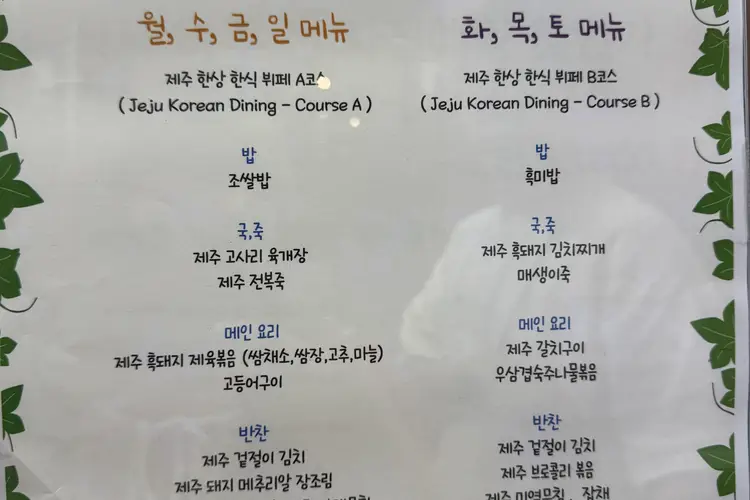 월, 수, 금, 일 메뉴
제주 한상 한식 뷔페 A코스
( Jeju Korean Dining - Course A )
밥
조쌀밥
국,죽
제주 고사리 육개장
제주 전복죽
메인 요리
제주 흑돼지 제육볶음 (쌈채소,쌈장,고추,마늘)
고등어구이
반찬
제주 겉절이 김치
제주 돼지 메추리알 장조림
화, 목, 토 메뉴
제주 한상 한식 뷔페 B코스
( Jeju Korean Dining - Course B )
밥
흑미밥
국,죽
제주 흑돼지 김치찌개
매생이죽
메인 요리
제주 갈치구이
우삼겹숙주나물볶음
반찬
제주 겉절이 김치
제주 브로콜리 볶음
제주 미역무침 , 잡채